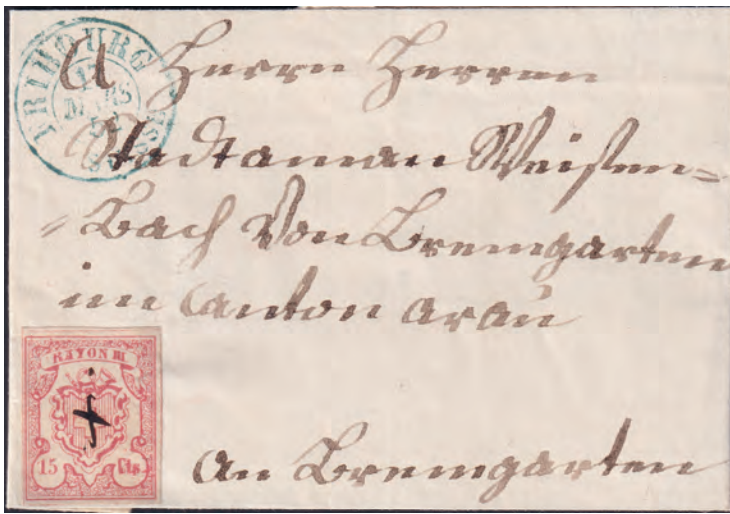 FRIBOURG
17
MARS
52
SUISSE
A Herrn Herren
Stadtaman Weißen=
=Bach Von Bremgarten
im Canton Arau
RAYON III.
15 Cts.
An Bremgarten